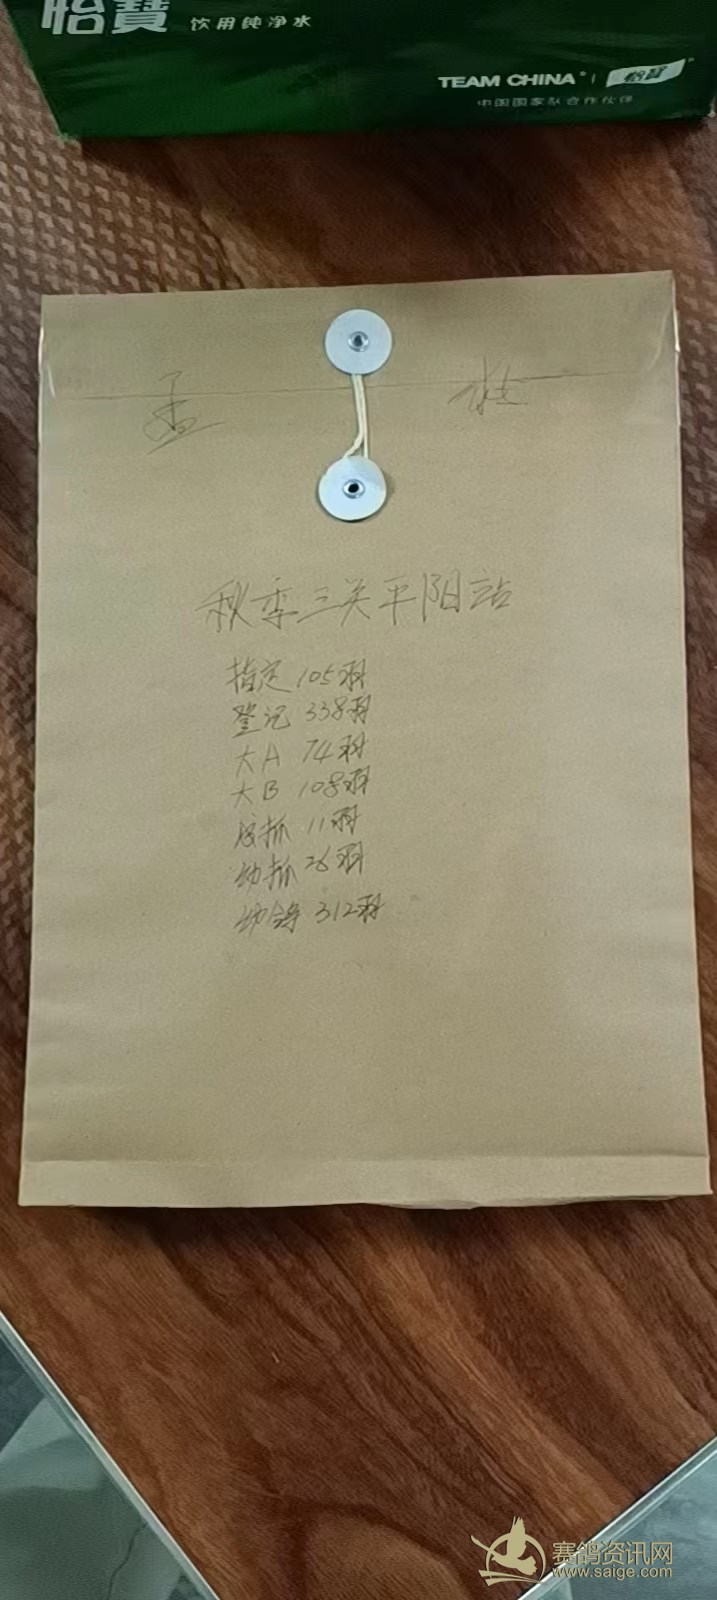 怡寶 饮用纯净水
TEAM CHINA | 怡寶
中国国家队合作伙伴
孟
秋季三关平阳站
指定 105羽
登记 338羽
大A 74羽
大B 108羽
抓 11羽
幼抓 26羽
幼鸽 312羽
赛鸽资讯网
www.saige.com